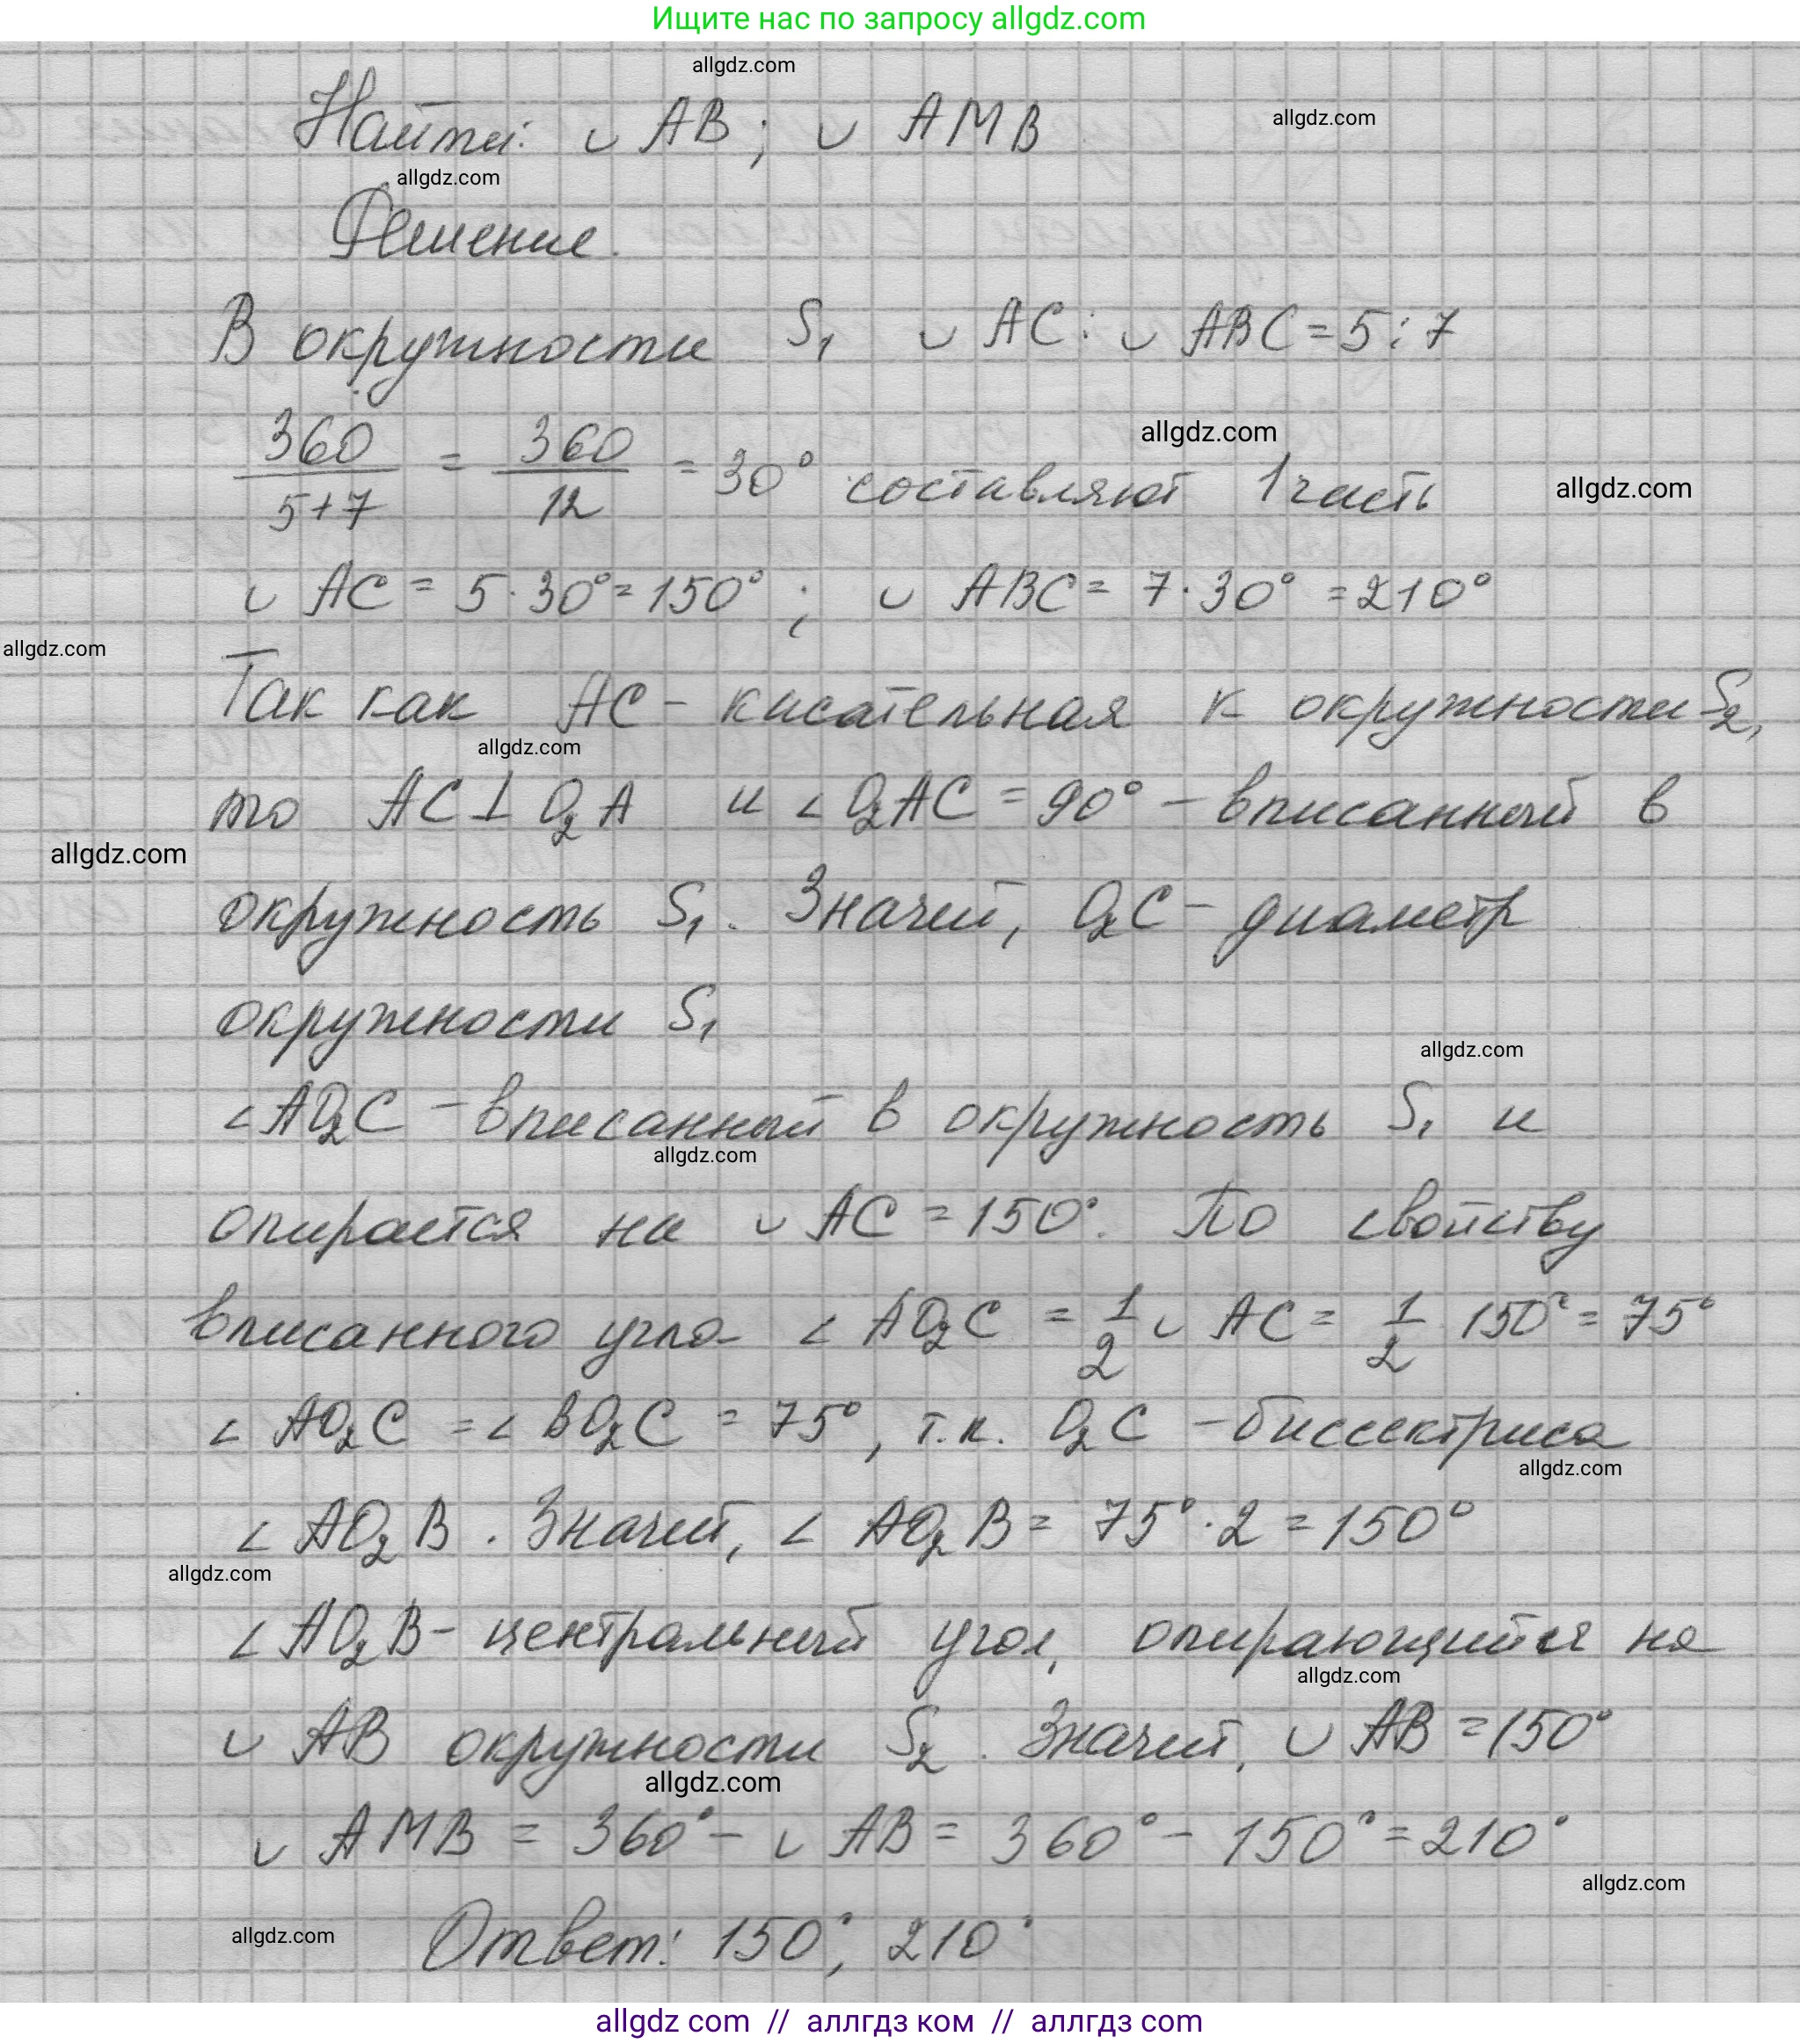 Ищите нас по запросу allgdz.com
allgdz.com
Найти: ∪ AB; ∪ AMB
allgdz.com
allgdz.com
Решение.
В окружности S₁ ∪ AC : ∪ ABC = 5 : 7
allgdz.com
360/(5+7) = 360/12 = 30° составляют 1 часть
allgdz.com
∪ AC = 5 · 30° = 150°; ∪ ABC = 7 · 30° = 210°
allgdz.com
Так как AC – кисательная к окружности S₂,
allgdz.com
то AC ⊥ O₂A и ∠ O₂AC = 90° – вписанный в
allgdz.com
окружность S₁. Значит, O₂C – диаметр
окружности S₁
allgdz.com
∠ AO₂C – вписанный в окружность S₁ и
allgdz.com
опирается на ∪ AC = 150°. По свойству
вписанного угла ∠ AO₂C = 1/2 ∪ AC = 1/2 150° = 75°
∠ AO₂C = ∠ BO₂C = 75°, т.к. O₂C – биссектриса
allgdz.com
∠ AO₂B. Значит, ∠ AO₂B = 75° · 2 = 150°
allgdz.com
∠ AO₂B – центральный угол, опирающийся на
allgdz.com
∪ AB окружности S₂. Значит, ∪ AB = 150°
allgdz.com
∪ AMB = 360° – ∪ AB = 360° – 150° = 210°
allgdz.com
allgdz.com
Ответ: 150°, 210°
allgdz com // аллгдз ком // аллгдз com